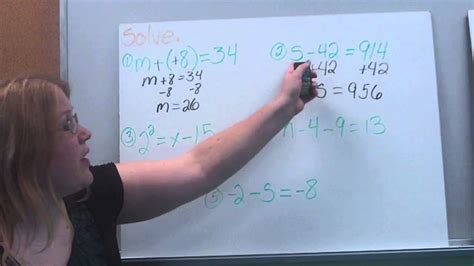 Solve.
① m+(+8)=34
m+8=34
-8 -8
m=26
② S-42=914
+42 +42
S=956
③ 2²=x-15
n-4-9=13
⑤ -2-S=-8